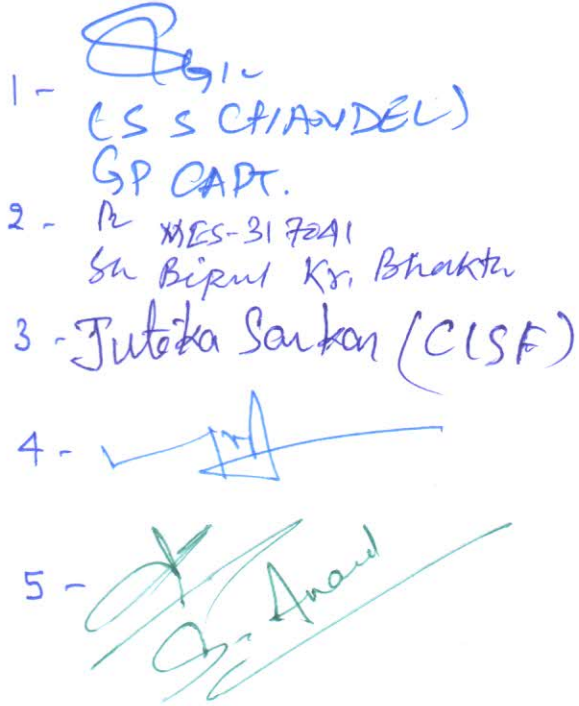 1 -
(S S CHANDEL)
GP CAPT.
2 - MES-317041
Sh Bipul Kr. Bhakta
3 - Jutika Sarkar (CISF)
4 -
5 -
S. Anand